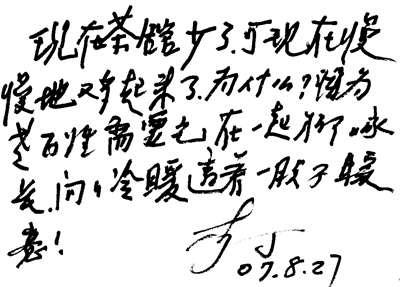 现在茶馆少了.可现在慢
慢地又多起来了.为什么?因为
老百姓需要它.在一起聊咏
长.问冷暖透着一股子暖
意!
07.8.27